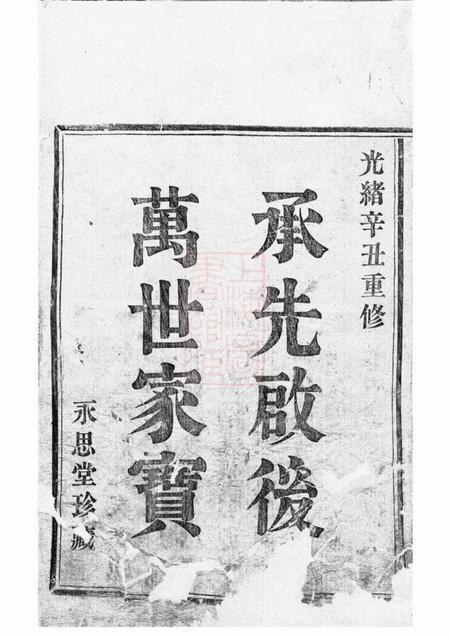 光緒辛丑重修
承先啟後
萬世家寶
永思堂珍藏